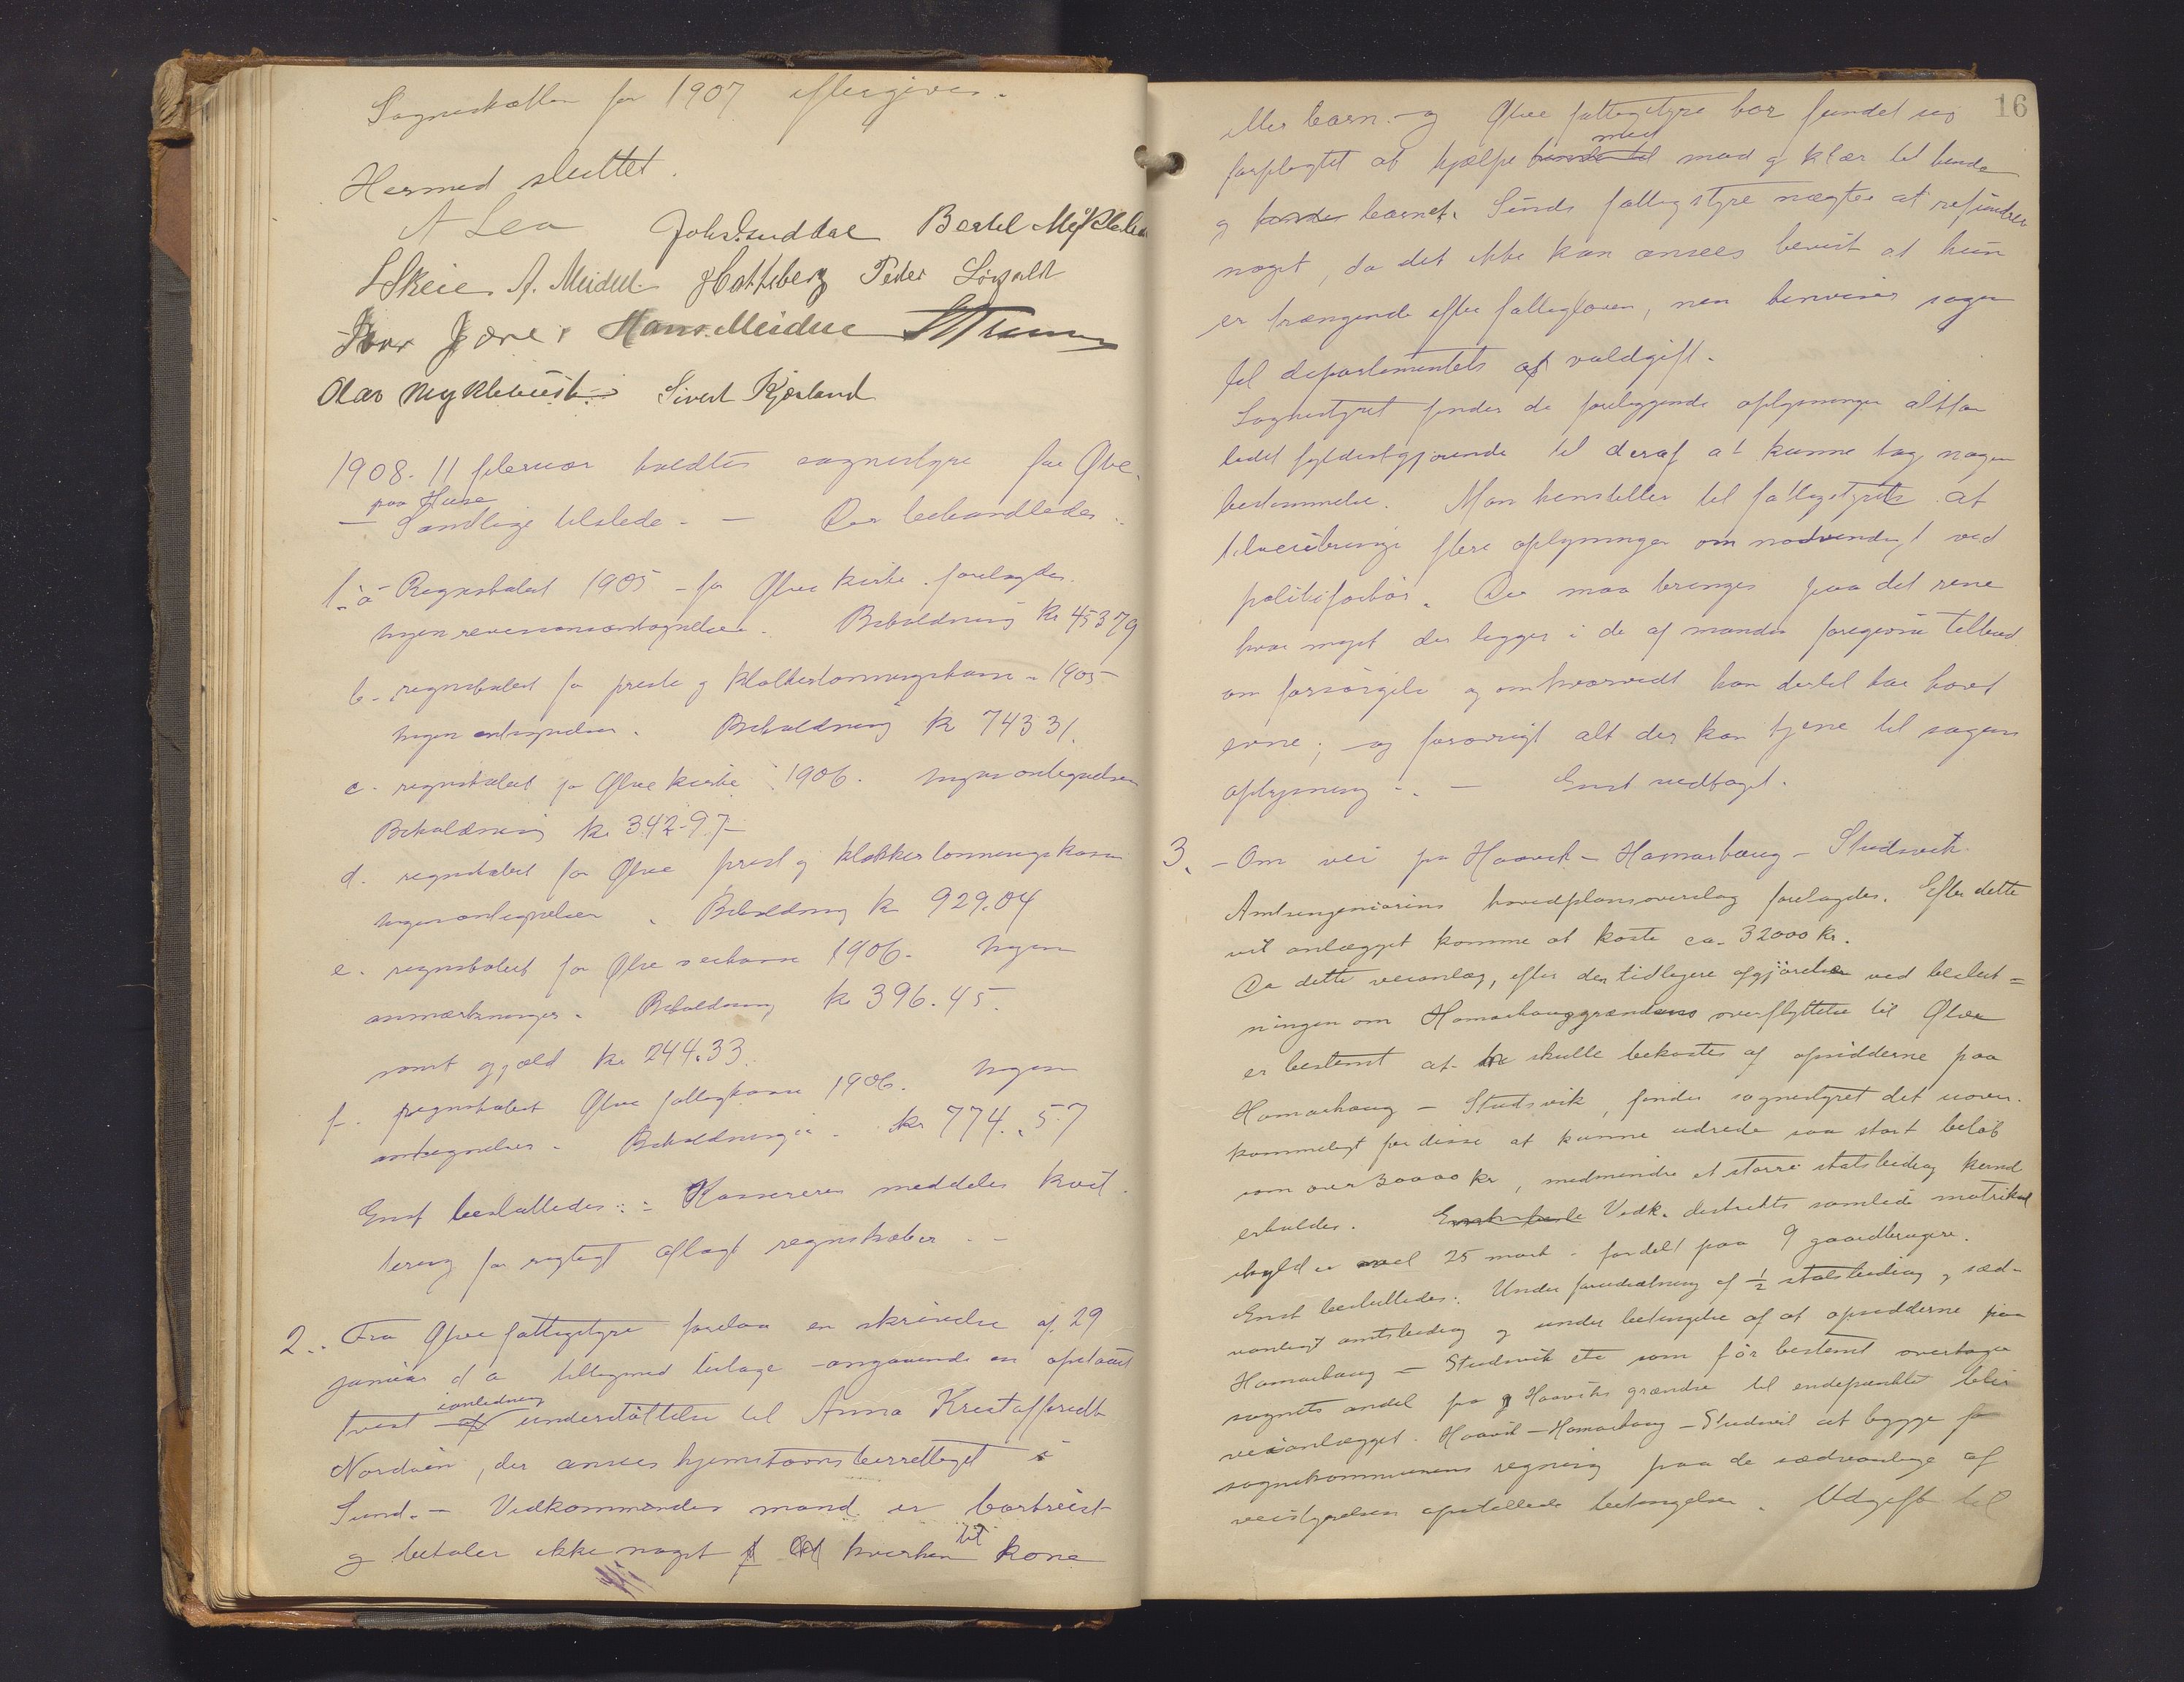 Sogneskatten for 1907 eftergives.
Hermed sluttet.
A Lea Johs. Guddal Bertel Myklebu
S Skeie A. Meidel J Hatteberg Peder
Iver Jære Hans Meidue
Olav Myklebust Sivert Kjerland
1908. 11 februar holdtes sognestyre for Ølve.
paa Huse
— Samtlige tilstede. — Der behandledes:
1. a. Regnskabet 1905 – for Ølve kirke. forelagdes.
Ingen revisionsantegnelser. Beholdning kr 45379
b. regnskabet for preste og klokkerlønningskasse 1905
Ingen antegnelser. Beholdning kr 743 31.
c. regnskabet for Ølve kirke 1906. Ingen antegnelser
Beholdning kr. 342-97-
d. regnskabet for Ølve prest og klokkerlønningskasse
Ingen antegnelser. Beholdning kr 929.04
e. regnskabet for Ølve veikasse 1906. Ingen
anmærkninger. Beholdning kr 396.45.
samt gjæld kr 244.33.
f. regnskabet Ølve fattigkasse 1906. Ingen
antegnelser. Beholdning kr 774.57
Enst besluttedes: Kassereren meddeles kvit-
tering for rigtigt aflagt regnskaber. –
2. Fra Ølve fattigstyre forelaa en skrivelse af 29
januar d a tilligemed bilage angaaende en opstaaet
ianledning
tvist af understøttelse til Anna Kristoffersdt
Nordvien, der ansees hjemstavnsberettiget i
Sund. — Vedkommendes mand er bortreist
til
og betaler ikke noget hverken kone
16
eller barn. – og Ølve fattigstyre har fundet sig
med
forpligtet at hjælpe hende til mad og klær til hende
og hendes barnet. Sunds fattigstyre nægter at refundere
noget, da det ikke kan ansees bevist at hun
er trængende efter fattigloven, men henviser sagen
til departementets af voldgift.
Sognestyret finder de foreliggende oplysninger altfor
lidet fyldestgjørende til deraf at kunne tag nogen
bestemmelse. Man henstiller til fattigstyret at
tilveiebringe flere oplysninger om nødvendigt ved
politiforhør. Der maa bringes paa det rene
hvor meget der ligger i de af manden foregivne tilbud
om forsørgelse og om hvorvidt han dertil har havt
evne; – og forøvrigt alt der kan tjene til sagens
oplysning. – Enst vedtaget.
3. – Om vei fra Haavik – Hamarhaug – Studsvik.
Amtsingeniørens hovedplansoverslag forelagdes. Efter dette
vil anlægget komme at koste ca. 32000 kr.
Da dette veianlæg, efter den tidligere afgjørelse ved beslut=
ningen om Hamarhauggrændens overflyttelse til Ølve
er bestemt at skulle bekostes af opsidderne paa
Hamarhaug – Studsvik, finder sognestyret det uover-
kommeligt for disse at kunne udrede saa stort beløb
som over 30000 kr, medmindre et større statsbidrag kunde
erholdes. Vedk. distrikts samlede matrikul
skyld er vel 25 mark – fordelt paa 9 gaardbrugere.
Enst besluttedes: Under forudsætning af ½ statsbidrag og sæd-
vanligt amtsbidrag og under betingelse af at opsidderne paa
Hamarhaug – Studsvik etc som før bestemt overtager
sognets andel fra Haaviks grændse til endepunktet blir
veianlægget. Haavik – Hamarhaug – Studsvik at bygge for
sognekommunens regning paa de sædvanlige af
veistyrelsen opstillede betingelser. Udgift til